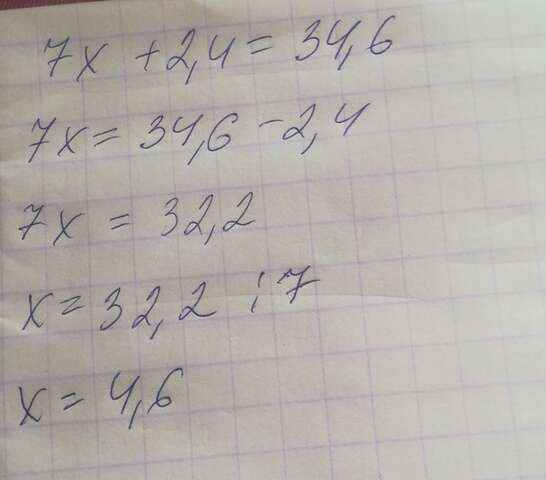 7x + 2,4 = 34,6
7x = 34,6 - 2,4
7x = 32,2
x = 32,2 : 7
x = 4,6